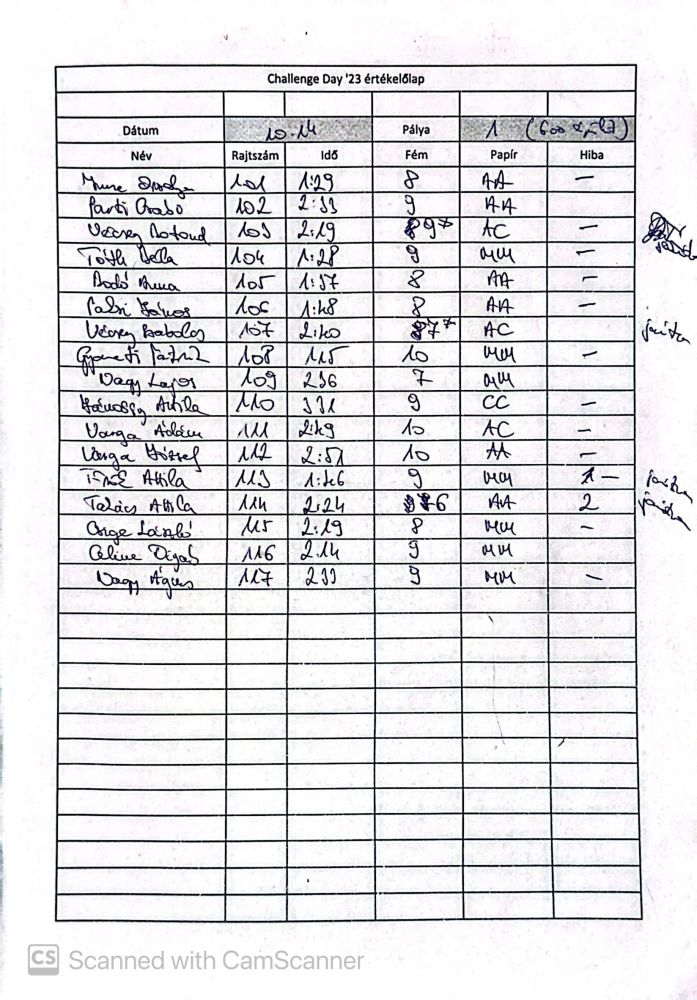 Challenge Day '23 értékelőlap
Dátum 10.14 Pálya 1 (600
Név Rajtszám Idő Fém Papír Hiba
101 1:29 8 AA —
Parti Csabó 102 2:33 9 AA
Vécsey Botond 103 2:19 9* AC —
Tóth Bella 104 1:28 9 MM —
Bodó Anna 105 1:57 8 AA —
János 106 1:48 8 AA —
Vécsey Szabolcs 107 2:40 7* AC javítva
Gyeneti Patrik 108 115 10 MM —
Nagy Lajos 109 236 7 MM
Jánossy Attila 110 331 9 CC —
Varga Ádám 111 2:49 10 AC —
Varga József 112 2:51 10 AA —
Attila 113 1:46 9 MM — javítva
Takács Attila 114 2:24 6 AA 2 javítva
László 115 2:19 8 MM —
116 2.14 9 MM
Nagy Ágnes 117 233 9 MM —
CS Scanned with CamScanner